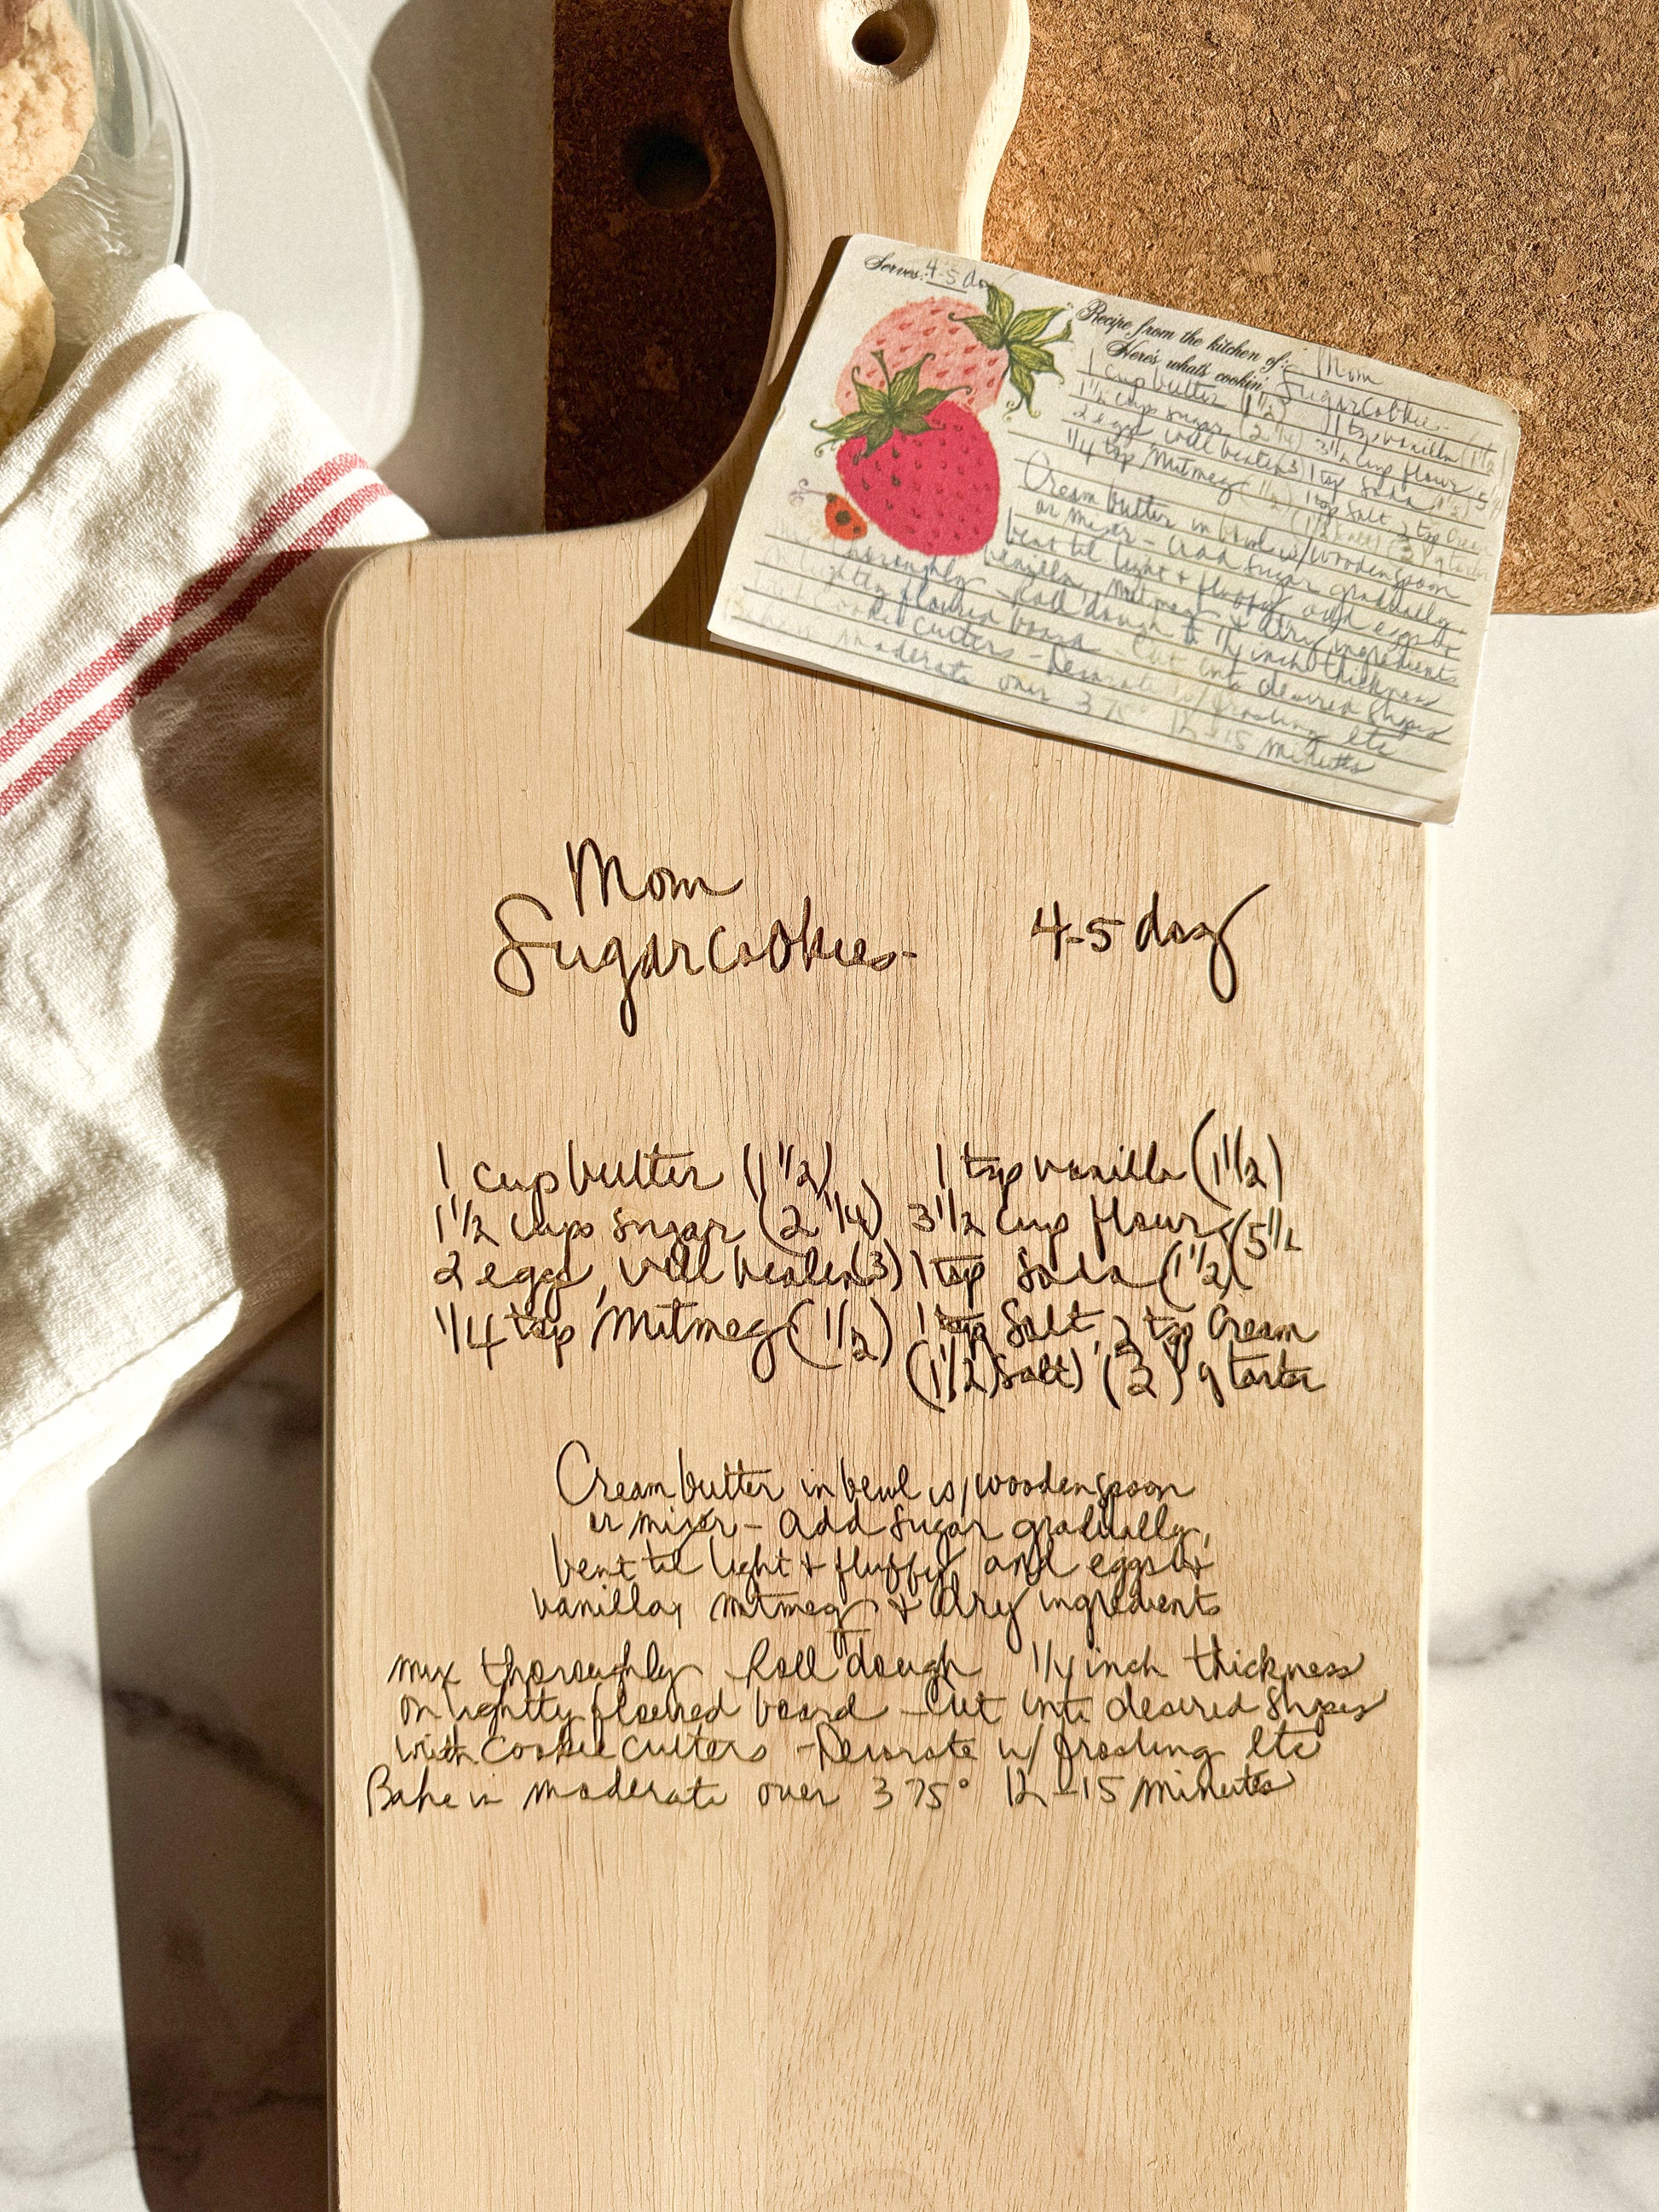 Serves: 4-5 doz
Recipe from the kitchen of: Mom
Here's what's cookin': Sugar Cookies-
1 cup butter (1 1/2) 1 tsp vanilla (1 1/2)
1 1/2 cups sugar (2 1/4) 3 1/2 cup flour 5 1/2
2 eggs, well beaten (3) 1 tsp Soda (1 1/2)
1/4 tsp Nutmeg (1/2) 1 tsp Salt, 2 tsp Cream
(1 1/2 salt) (3) of tarter
Cream butter in bowl w/ wooden spoon
or mixer - add sugar gradually,
beat til light + fluffy add eggs +
vanilla, nutmeg + dry ingredients
thoroughly Roll dough to 1/4 inch thickness
lightly floured board - Cut into desired shapes
cookie cutters - Decorate w/ frosting etc
in moderate over 375° 12-15 minutes
Mom
Sugar Cookies- 4-5 doz
1 cup butter (1 1/2) 1 tsp vanilla (1 1/2)
1 1/2 cups sugar (2 1/4) 3 1/2 cup flour (5 1/2
2 eggs, well beaten (3) 1 tsp Soda (1 1/2)
1/4 tsp Nutmeg (1/2) 1 tsp Salt, 2 tsp Cream
(1 1/2 Salt) (3) of tarter
Cream butter in bowl w/ wooden spoon
or mixer - add sugar gradually,
beat til light + fluffy add eggs +
vanilla, nutmeg + dry ingredients
mix thoroughly Roll dough 1/4 inch thickness
on lightly floured board - Cut into desired shapes
with cookie cutters - Decorate w/ frosting etc
Bake in moderate over 375° 12-15 minutes